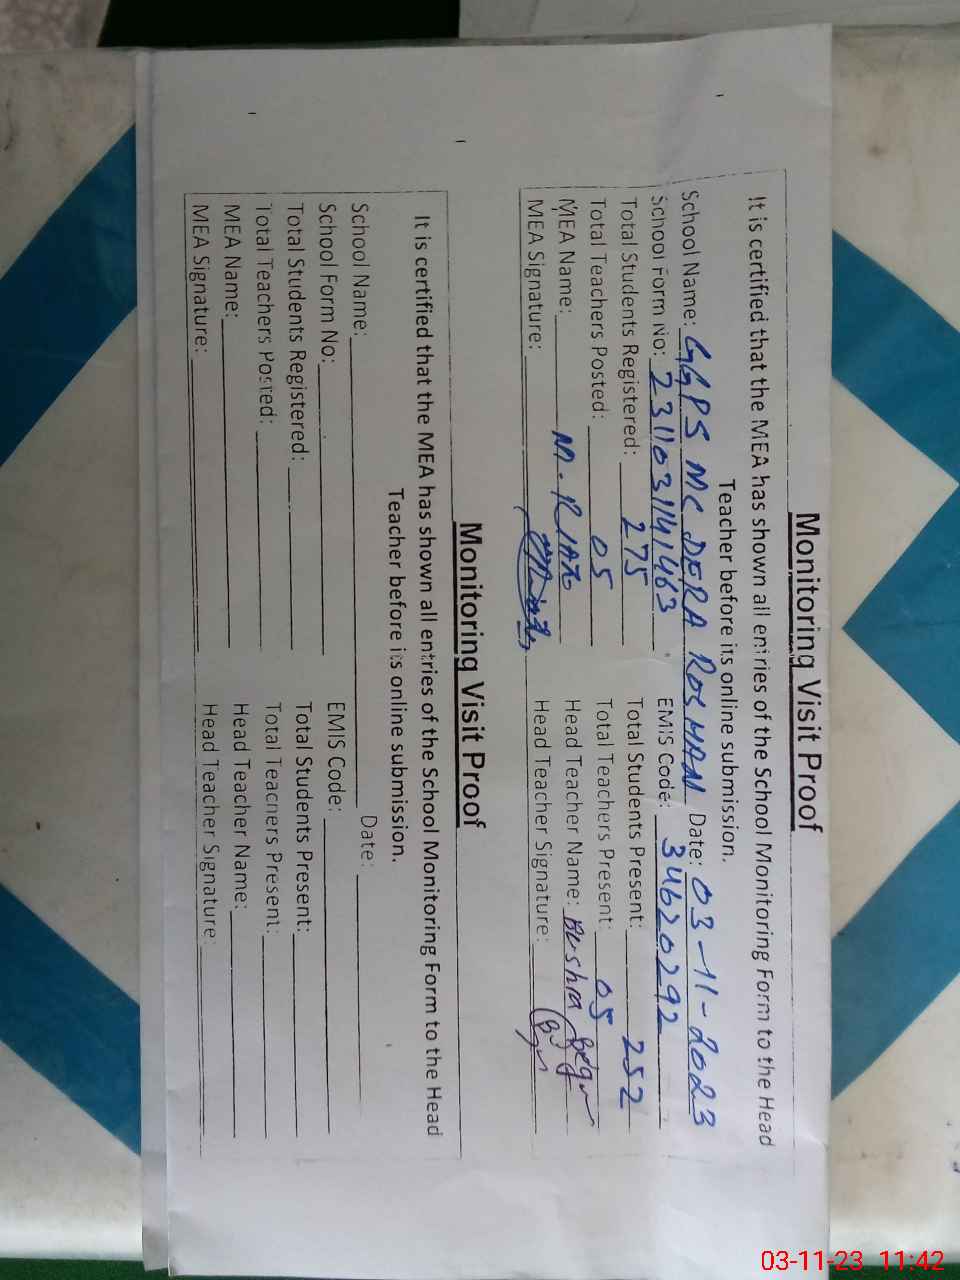 Monitoring Visit Proof
It is certified that the MEA has shown all entries of the School Monitoring Form to the Head
Teacher before its online submission.
School Name: GGPS MC DERA ROSHAN Date: 03-11-2023
School Form No: 231103141463 EMIS Code: 34620292
Total Students Registered: 275 Total Students Present: 252
Total Teachers Posted: 05 Total Teachers Present: 05
MEA Name: M. RIAZ Head Teacher Name: Bushra Begum
MEA Signature: Head Teacher Signature:
Monitoring Visit Proof
It is certified that the MEA has shown all entries of the School Monitoring Form to the Head
Teacher before its online submission.
School Name: Date:
School Form No: EMIS Code:
Total Students Registered: Total Students Present:
Total Teachers Posted: Total Teachers Present:
MEA Name: Head Teacher Name:
MEA Signature: Head Teacher Signature:
03-11-23 11:42